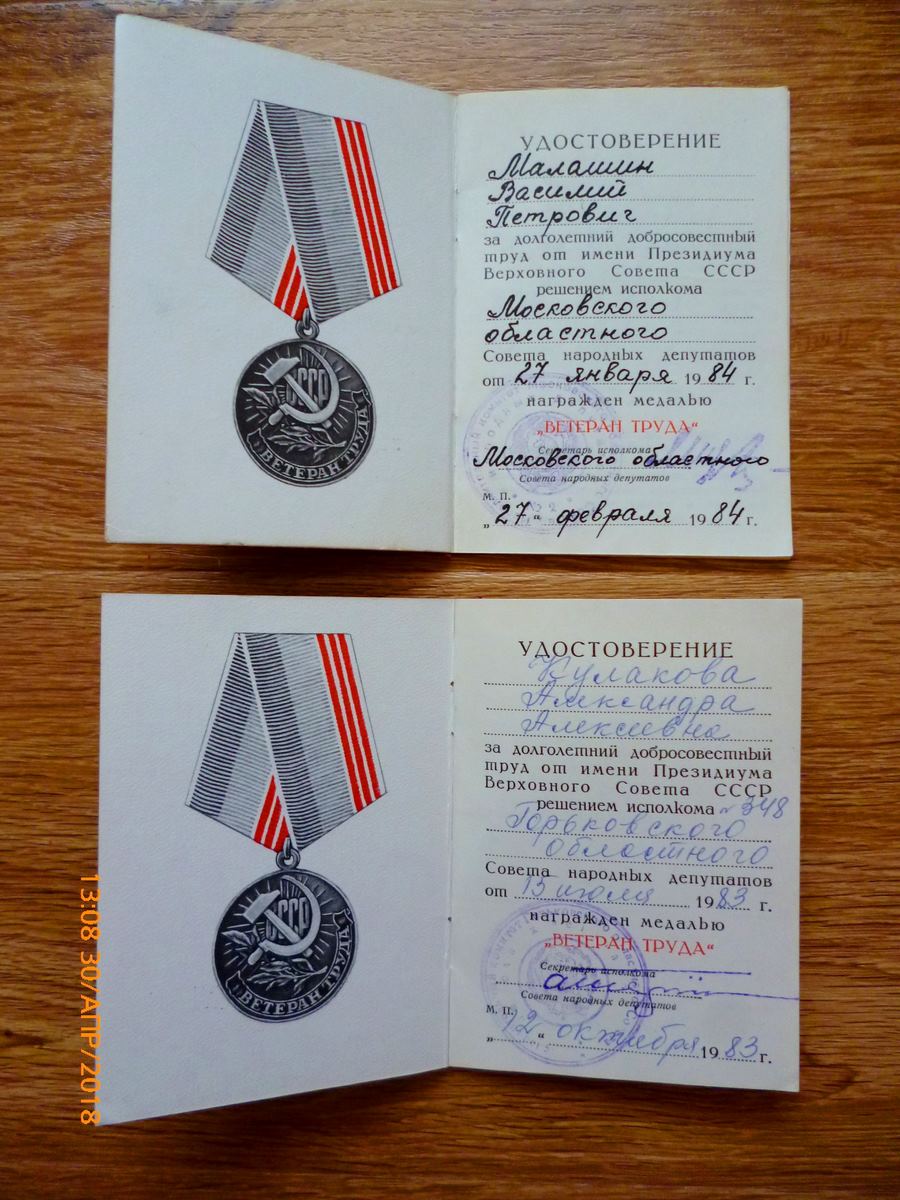 СССР
ВЕТЕРАН ТРУДА
УДОСТОВЕРЕНИЕ
Малашин
Василий
Петрович
за долголетний добросовестный
труд от имени Президиума
Верховного Совета СССР
решением исполкома
Московского
областного
Совета народных депутатов
от 27 января 1984 г.
награжден медалью
„ВЕТЕРАН ТРУДА“
Секретарь исполкома
Московского областного
Совета народных депутатов
М. П.
„27“ февраля 1984 г.
СССР
ВЕТЕРАН ТРУДА
УДОСТОВЕРЕНИЕ
Кулакова
Александра
Алексеевна
за долголетний добросовестный
труд от имени Президиума
Верховного Совета СССР
решением исполкома № 348
Горьковского
областного
Совета народных депутатов
от 13 июля 1983 г.
награжден медалью
„ВЕТЕРАН ТРУДА“
Секретарь исполкома
Совета народных депутатов
М. П.
„12“ октября 1983 г.
13:08 30/АПР/2018